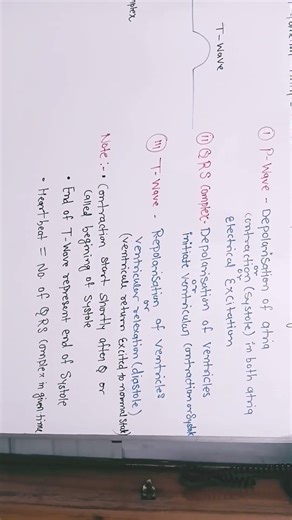 T-Wave
(I) P-Wave - Depolarisation of atria
or
contraction (systole) in both atria
or
Electrical Excitation
(II) QRS Complex- Depolarisation of ventricles
or
initiate ventricular (contraction or Systole)
(III) T-Wave - Repolarisation of ventricles
or
ventricular relaxation (diastole)
(ventricual return Excited to normal state)
Note:- • Contraction start shortly after Q or
called begining of systole
• End of T-Wave represent end of Systole
• Heart beat = No. of QRS Complex in given time